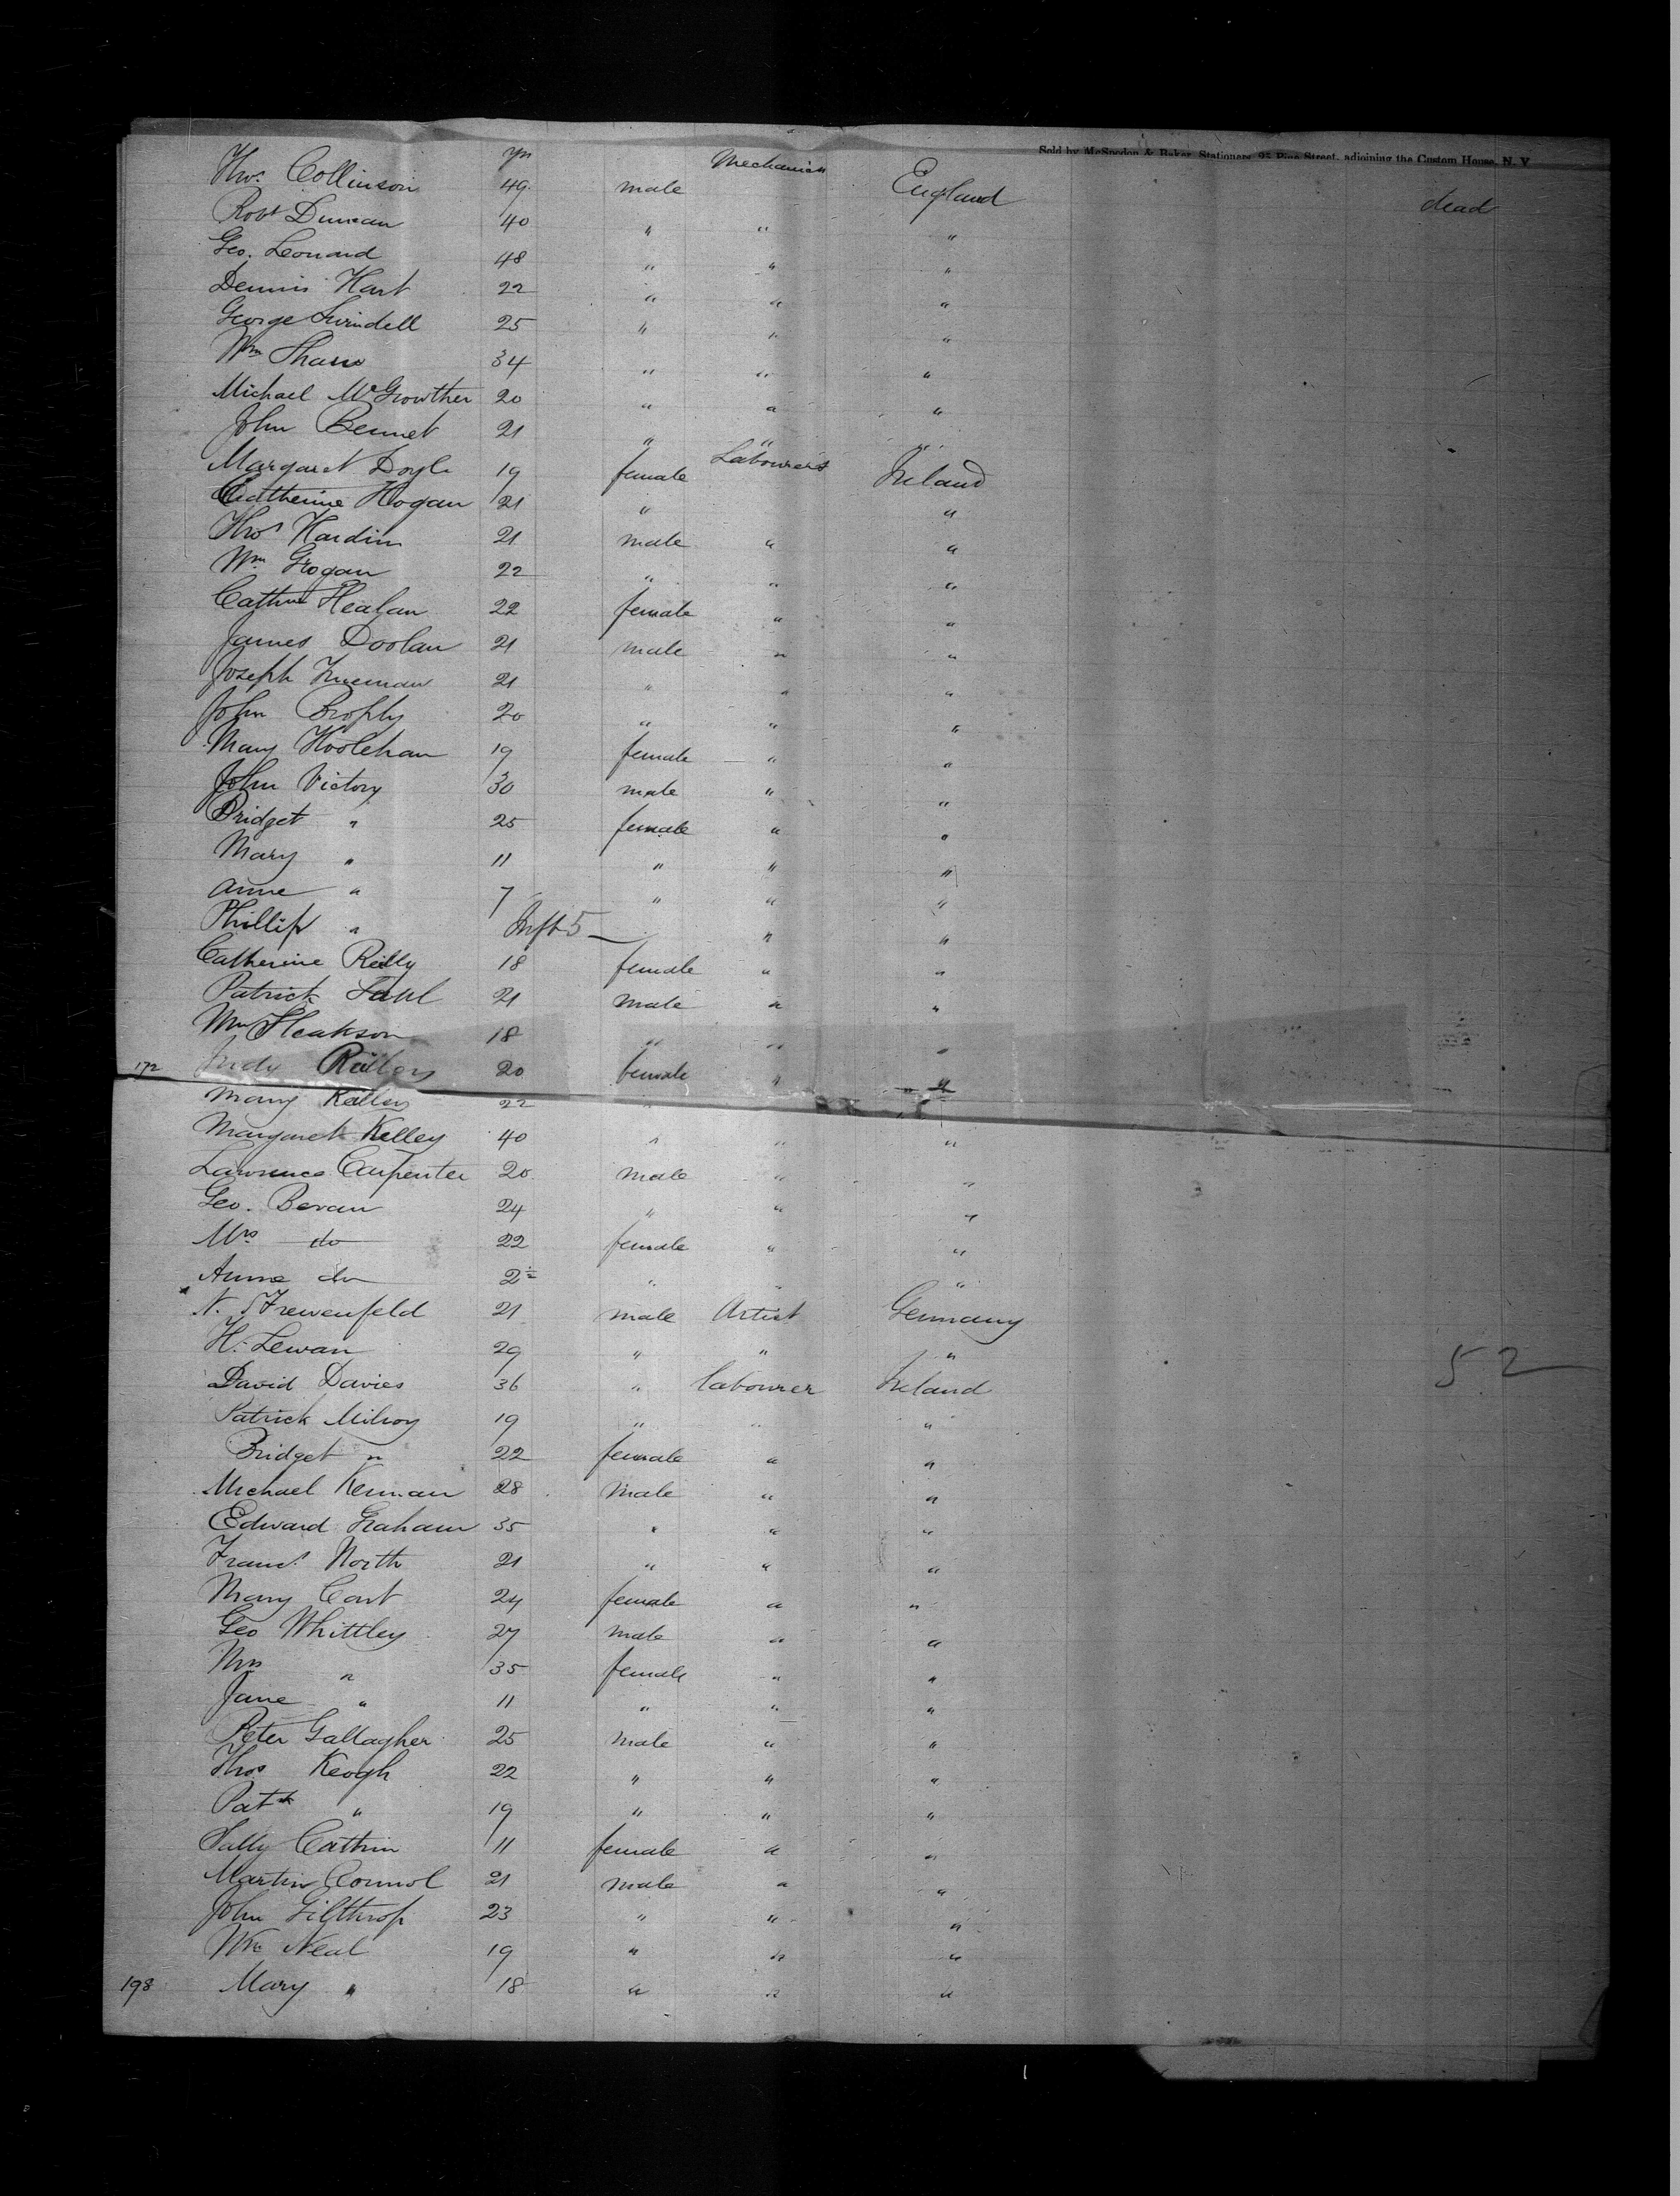 Sold by McSpedon & Baker, Stationers, 25 Pine Street, adjoining the Custom House, N. Y.
yrs Mechanics
Thos. Collinson 49 male England dead
Robt Duncan 40 " " "
Geo. Leonard 48 " " "
Dennis Hart 22 " " "
George Swindell 25 " " "
Wm Shaw 34 " " "
Michael McGrowther 20 " " "
John Bennet 21 " " "
Margaret Doyle 19 female Labourers Ireland
Catherine Hogan 21 " "
Thos Hardim 21 male " "
Wm Grogan 22 " " "
Cathne Healan 22 female " "
James Doolan 21 male " "
Joseph Trueman 21 " " "
John Brophy 20 " " "
Mary Hoolehan 19 female " "
John Victory 30 male " "
Bridget " 25 female " "
Mary " 11 " " "
Anne " 7 " " "
Phillip " Inft 5 " "
Catherine Reilly 18 female " "
Patrick 21 male " "
Wm 18 " " "
172 Judy 20 female " "
Mary 22 "
Margaret Kelley 40 " " "
Lawrence Carpenter 20 male " "
Geo. Bevan 24 " " "
Mrs do 22 female " "
Anne do 2 " " "
N. Frewenfeld 21 male Artist Germany
H. Lewan 29 " " "
David Davies 36 " labourer Ireland
52
Patrick Milroy 19 " " "
Bridget " 22 female " "
Michael Kernan 28 Male " "
Edward Graham 35 " " "
Frans. North 21 " " "
Mary Cart 24 female " "
Geo Whittley 27 male " "
Mrs " 35 female " "
Jane " 11 " " "
Peter Gallagher 25 Male " "
Thos Keogh 22 " " "
Patk " 19 " " "
Sally 11 female " "
Martin Connol 21 male " "
John Gilthrop 23 " " "
Wm Neal 19 " " "
198 Mary " 18 " " "